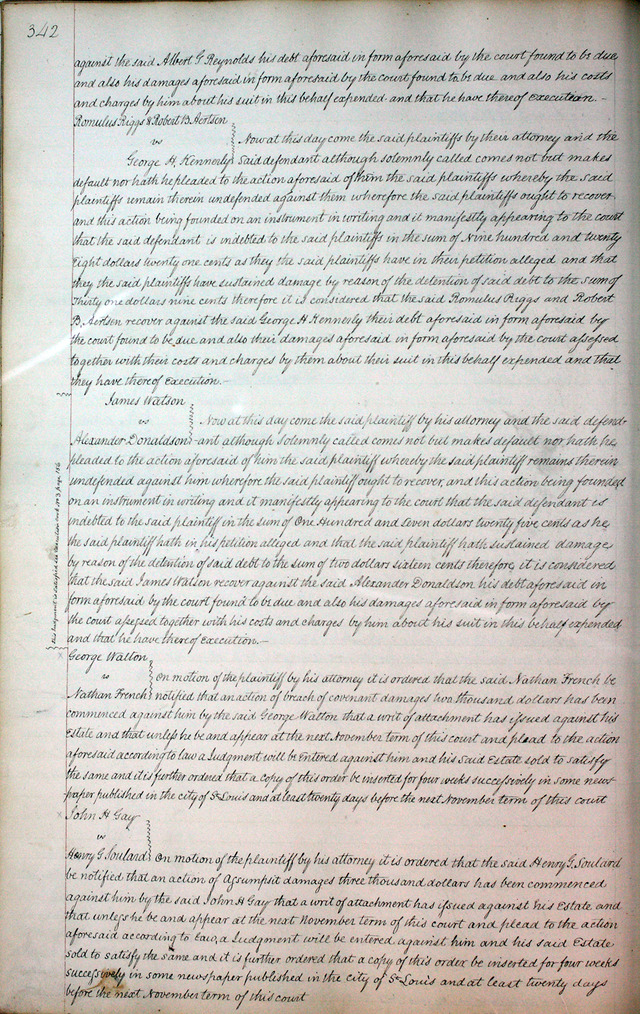 342
against the said Albert G Reynolds his debt aforesaid in form aforesaid by the court found to be due
and also his damages aforesaid in form aforesaid by the court found to be due and also his costs
and charges by him about his suit in this behalf expended and that he have thereof execution. –
Romulus Riggs & Robert B Aertson
vs
Now at this day come the said plaintiffs by their attorney and the
George H. Kennerly said defendant although solemnly called comes not but makes
default nor hath he pleaded to the action aforesaid of them the said plaintiffs whereby the said
plaintiffs remain therein undefended against them wherefore the said plaintiffs ought to recover
and this action being founded on an instrument in writing and it manifestly appearing to the court
that the said defendant is indebted to the said plaintiffs in the sum of Nine hundred and twenty
Eight dollars twenty one cents as they the said plaintiffs have in their petition alleged and that
they the said plaintiffs have sustained damage by reason of the detention of said debt to the sum of
Thirty one dollars nine cents therefore it is considered that the said Romulus Riggs and Robert
B. Aertsen recover against the said George H Kennerly their debt aforesaid in form aforesaid by
the court found to be due and also their damages aforesaid in form aforesaid by the court assessed
together with their costs and charges by them about their suit in this behalf expended and that
they have thereof execution. –
James Watson
vs
Now at this day come the said plaintiff by his attorney and the said defend-
Alexander Donaldson -ant although solemnly called comes not but makes default nor hath he
pleaded to the action aforesaid of him the said plaintiff whereby the said plaintiff remains therein
undefended against him wherefore the said plaintiff ought to recover, and this action being founded
on an instrument in writing and it manifestly appearing to the court that the said defendant is
indebted to the said plaintiff in the sum of One Hundred and Seven dollars twenty five cents as he
the said plaintiff hath in his petition alleged and that the said plaintiff hath sustained damage
by reason of the detention of said debt to the sum of two dollars sixteen cents therefore, it is considered
that the said James Watson recover against the said Alexander Donaldson his debt aforesaid in
form aforesaid by the court found to be due and also his damages aforesaid in form aforesaid by
the court assessed together with his costs and charges by him about his suit in this behalf expended
and that he have thereof execution. –
this judgment is satisfied see Execution
George Walton
vs
On motion of the plaintiff by his attorney it is ordered that the said Nathan French be
Nathan French notified that an action of breach of covenant damages two thousand dollars has been
commenced against him by the said George Walton that a writ of attachment has issued against his
Estate and that unless he be and appear at the next November term of this court and plead to the action
aforesaid according to law a Judgment will be Entered against him and his said Estate sold to satisfy
the same and it is further ordered that a copy of this order be inserted for four weeks successively in some news
paper published in the city of St Louis and at least twenty days before the next November term of this court
x John H Gay
vs
Henry G Soulard On motion of the plaintiff by his attorney it is ordered that the said Henry G. Soulard
be notified that an action of Assumpsit damages three thousand dollars has been commenced
against him by the said John H Gay that a writ of attachment has issued against his Estate and
that unless he be and appear at the next November term of this court and plead to the action
aforesaid according to Law, a Judgment will be entered against him and his said Estate
sold to satisfy the same and it is further ordered that a copy of this order be inserted for four weeks
successively in some newspaper published in the city of St Louis and at least twenty days
before the next November term of this court